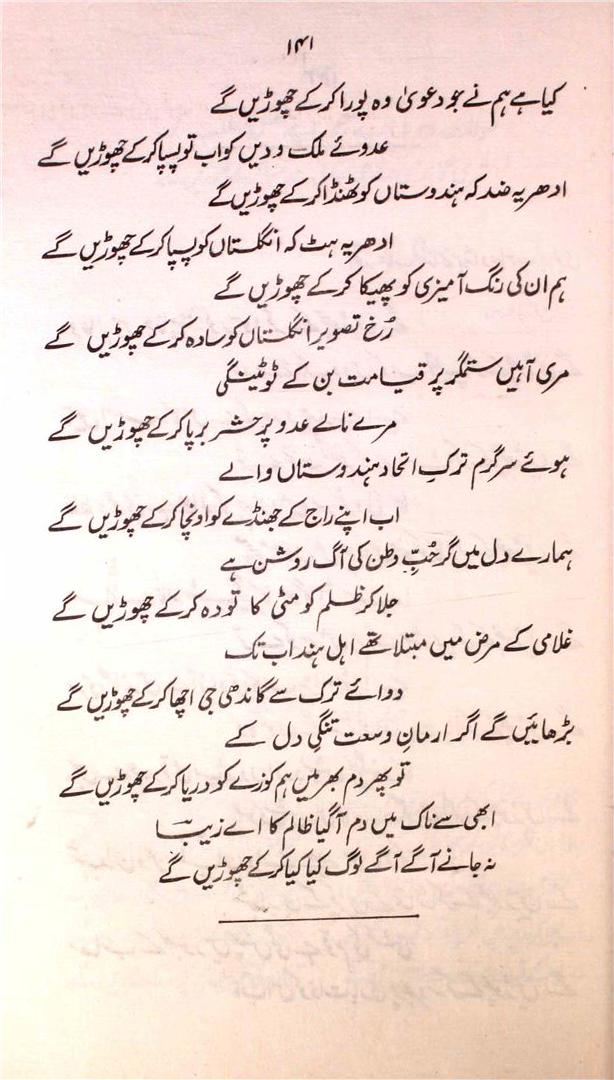 ۱۴۱
کیا ہے ہم نے جو دعویٰ وہ پورا کر کے چھوڑیں گے
عدوئے ملک و دیں کو اب تو پسپا کر کے چھوڑیں گے
ادھر یہ ضد کہ ہندوستاں کو ٹھنڈا کر کے چھوڑیں گے
ادھر یہ ہٹ کہ انگلستاں کو پسپا کر کے چھوڑیں گے
ہم ان کی رنگ آمیزی کو پھیکا کر کے چھوڑیں گے
رُخ تصویر انگلستاں کو سادہ کر کے چھوڑیں گے
مری آہیں ستمگر پر قیامت بن کے ٹوٹینگی
مرے نالے عدو پر حشر برپا کر کے چھوڑیں گے
ہوئے سرگرم ترکِ اتحاد ہندوستاں والے
اب اپنے راج کے جھنڈے کو اونچا کر کے چھوڑیں گے
ہمارے دل میں گر حُبِّ وطن کی آگ روشن ہے
جلا کر ظلم کو مٹی کا تودہ کر کے چھوڑیں گے
غلامی کے مرض میں مبتلا تھے اہل ہند اب تک
دوائے ترک سے گاندھی جی اچھا کر کے چھوڑیں گے
بڑھائیں گے اگر ارمانِ وسعت تنگیِ دل کے
تو پھر دم بھر میں ہم کوزے کو دریا کر کے چھوڑیں گے
ابھی سے ناک میں دم آگیا ظالم کا اے زیبا
نہ جانے آگے آگے لوگ کیا کیا کر کے چھوڑیں گے